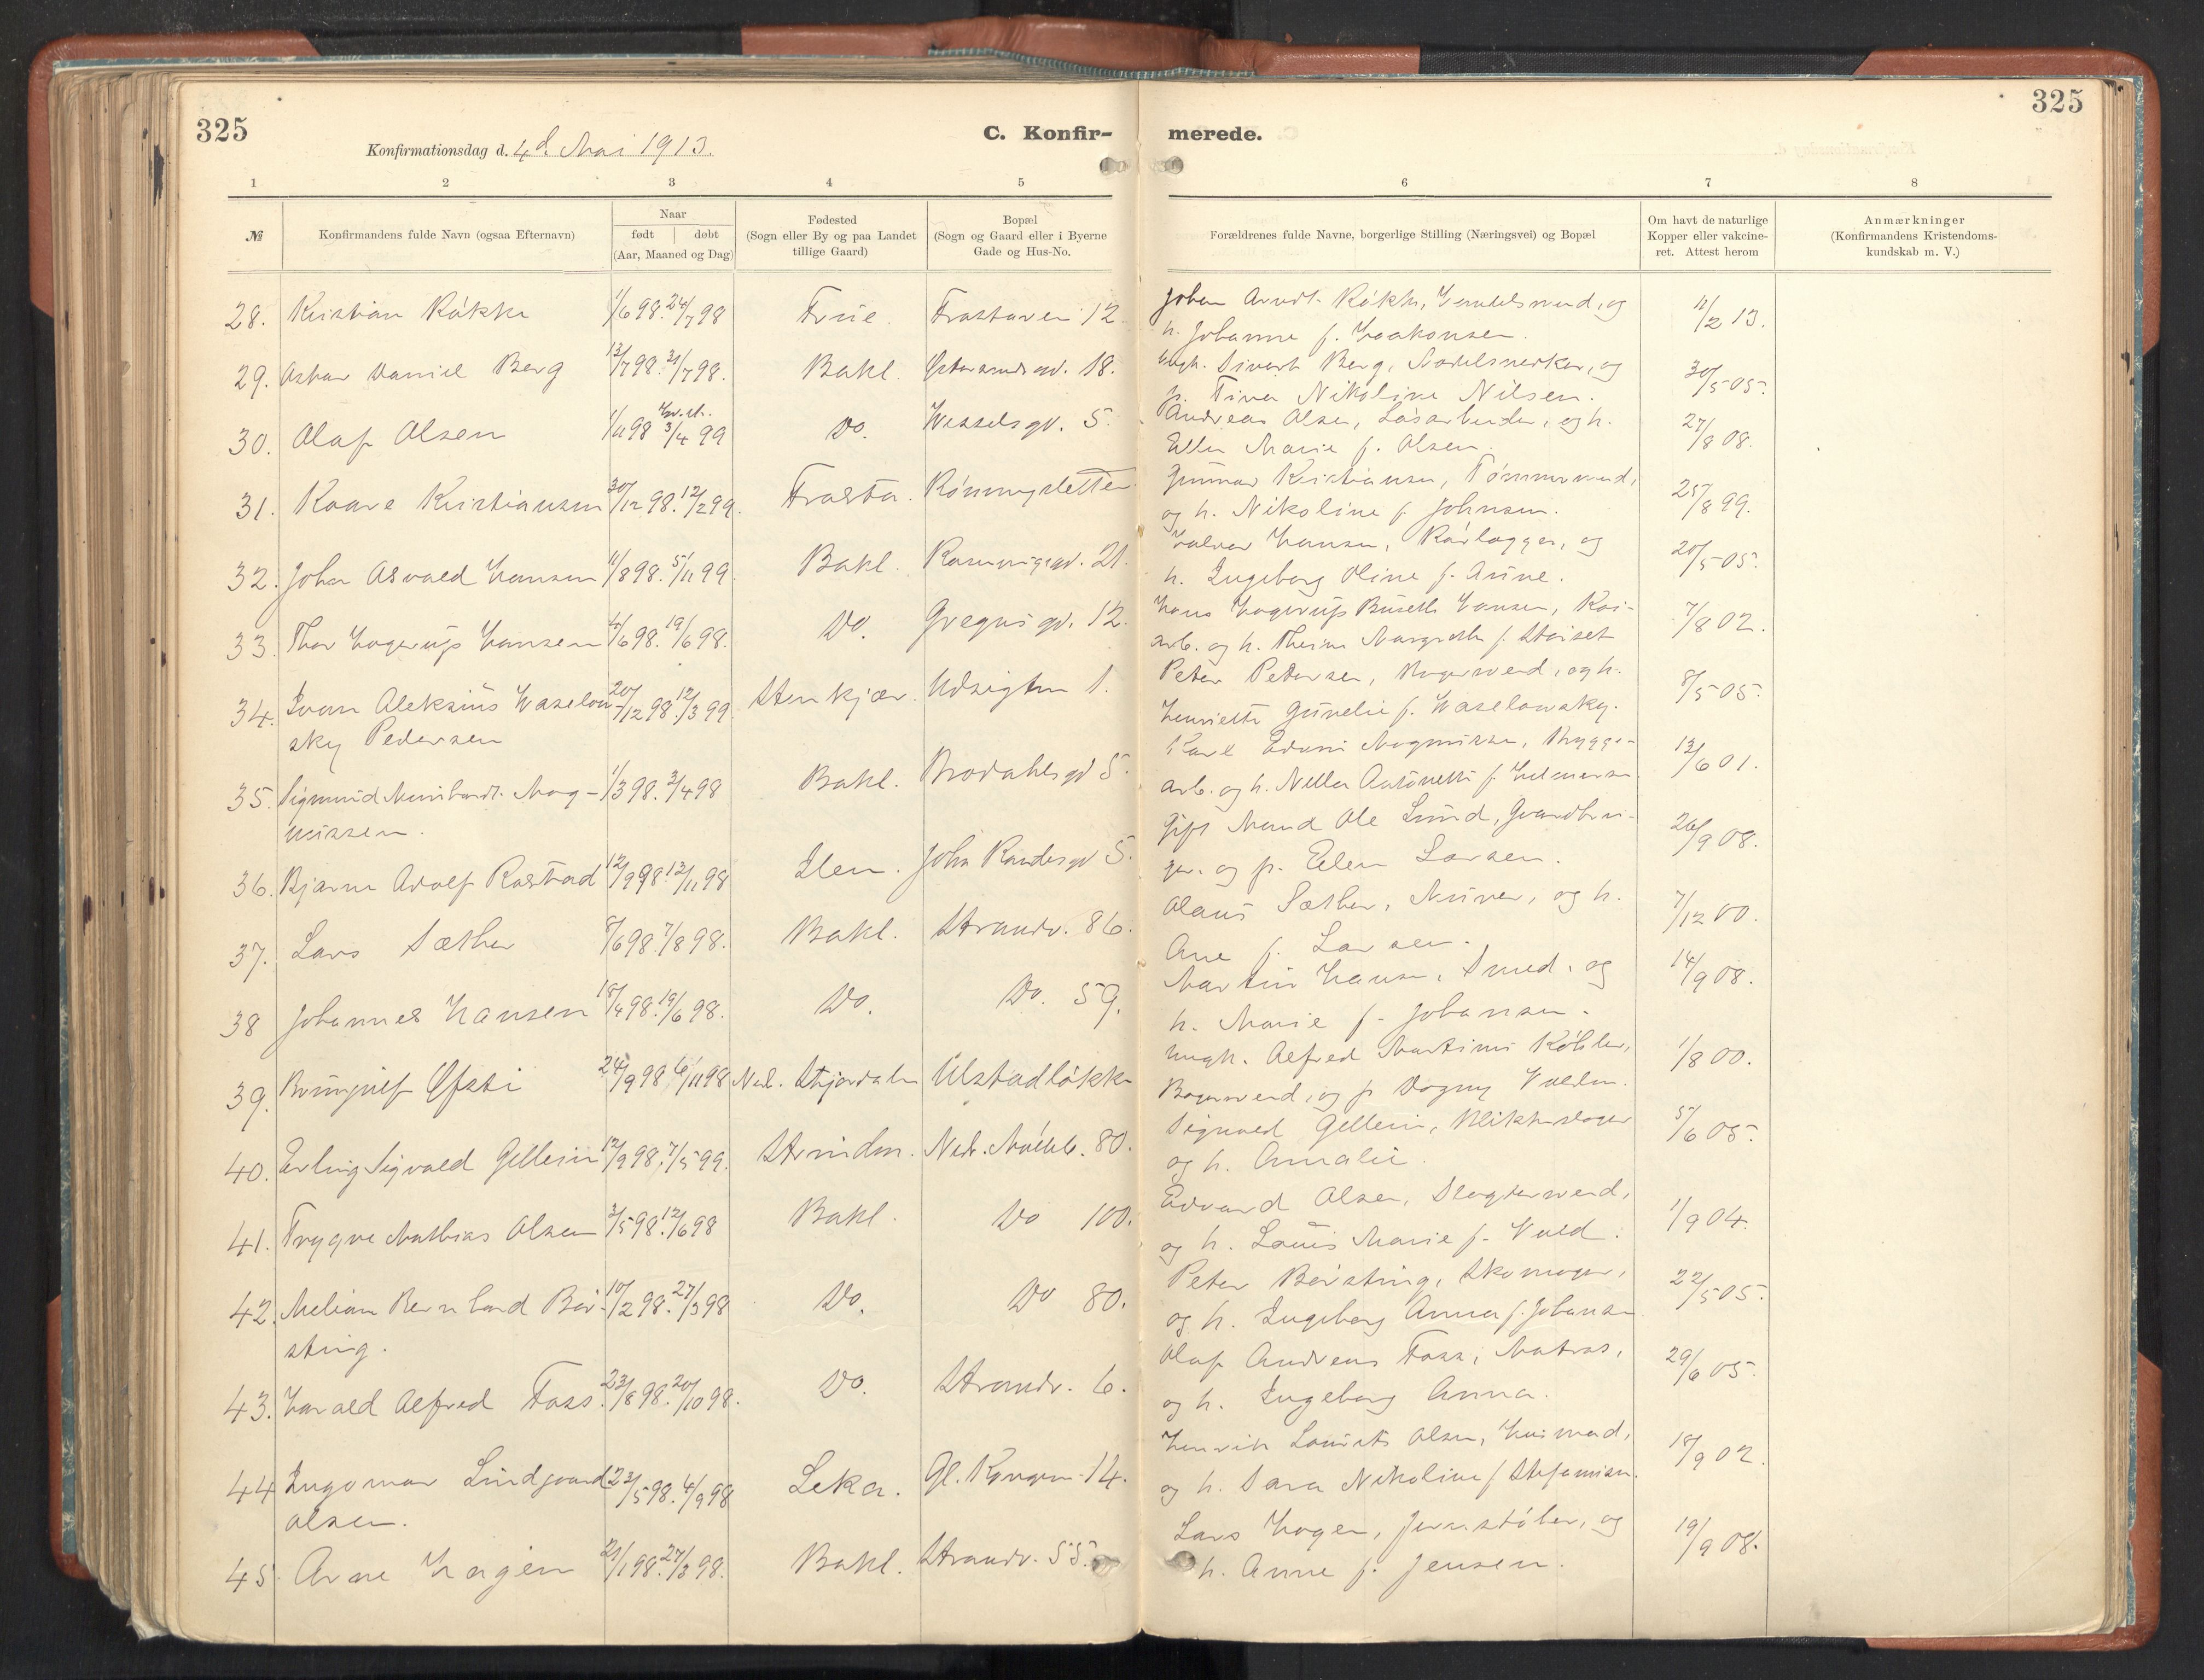 325
C. Konfir-
merede.
325
Konfirmationsdag d. 4d. Mai 1913.
1 2 3 4 5 6 7 8
№
Konfirmandens fulde Navn (ogsaa Efternavn)
Naar
født | døbt
(Aar, Maaned og Dag)
Fødested
(Sogn eller By og paa Landet
tillige Gaard)
Bopæl
(Sogn og Gaard eller i Byerne
Gade og Hus-No.
Forældrenes fulde Navne, borgerlige Stilling (Næringsvei) og Bopæl
Om havt de naturlige
Kopper eller vakcine-
ret. Attest herom
Anmærkninger
(Konfirmandens Kristendoms-
kundskab m. V.)
28. Kristian Røkke 1/6 98. 24/7 98 Frue. 12. Johan Arndt Røkke, og 11/2 13.
h. Johanne f. Haakonsen.
29. Daniel Berg 13/7 98. 31/7 98. Bakl. 18. Sivert Berg, og 30/5 05.
Nikoline Nilsen.
30. Olaf Olsen 1/11 98 3/4 99 Do. Wesselsgd. 5. Andreas Olsen, og h. 27/8 08.
Marie f. Olsen.
31. Kaare Kristiansen 30/12 98. 12/2 99. Frosta. Rønningsletten Gunnar Kristiansen, Tømmermand, 25/8 99.
og h. Nikoline f. Johnsen.
32. John Asvald Hansen 11/8 98. 5/11 99 Bakl. 21. Hansen, Rørlægger, og 20/5 05.
h. Ingeborg Oline f. Aune.
33. Thor Hagerup Hansen 4/6 98. 19/6 98. Do. 12. Hans Hagerup Hansen, Kai- 7/8 02.
arb. og h.
34. Ivan Aleksius Waselow- 20/12 98. 12/3 99. Stenkjær. Udsigten 1. Peter Petersen, og h. 8/5 05.
sky Pedersen
Henriette f. Waselowsky.
35. Sigmund Mag- 1/3 98. 3/4 98 Bakl. Brodahlsgd 5. Karl Magnussen, Brygge- 13/6 01.
nussen.
arb. og h.
36. Bjarne Adolf Rostad 12/9 98. 13/11 98 Ilen. 5. Gift Mand Ole Lund, 26/9 08.
og p. Larsen.
37. Lars Sæther 8/6 98. 7/8 98. Bakl. Strandv. 86. Olaus Sæther, Murer, og h. 7/12 00.
Ane f. Larsen.
38 Johannes Hansen 18/4 98. 19/6 98. Do. Do. 59. Martin Hansen, Smed, og 14/9 08.
h. Marie f. Johansen.
39. Brynjulf Øfsti 24/9 98 6/11 98 Ned. Stjørdalen Ulstadløkken Ungk. Alfred Køhler, 1/8 00.
Bagersvend, og p. Dagny
40. Erling Sigvald Gellein 12/9 98. 7/5 99. Strinden. Ned. 80. Sigvald Gellein, 5/6 05.
og h. Amalie.
41. Trygve Mathias Olsen 3/5 98. 12/6 98 Bakl. Do 100. Edvard Olsen, Slagtersvend, 1/9 04.
og h. Marie f.
42. Bernhard Bør- 10/2 98. 27/3 98 Do. Do 80. Peter Børsting, Skomager, 22/5 05.
sting.
og h. Ingeborg Anna f. Johansen
43. Harald Alfred Foss. 23/8 98. 20/10 98. Do. Strandv. 6. Olaf Andreas Foss, Matros, 29/6 05.
og h. Ingeborg Anna.
44 Ingomar Lindgaard 23/5 98. 4/9 98 Leka. Gl. 14. Henrik Olsen, 18/9 02.
Olsen.
og h. Sara Nikoline f.
45. Arne Hagen 21/1 98. 27/3 98. Bakl. Strandv. 55. Lars Hagen, Jernstøber, og 19/9 08.
h. Anne f. Jensen.